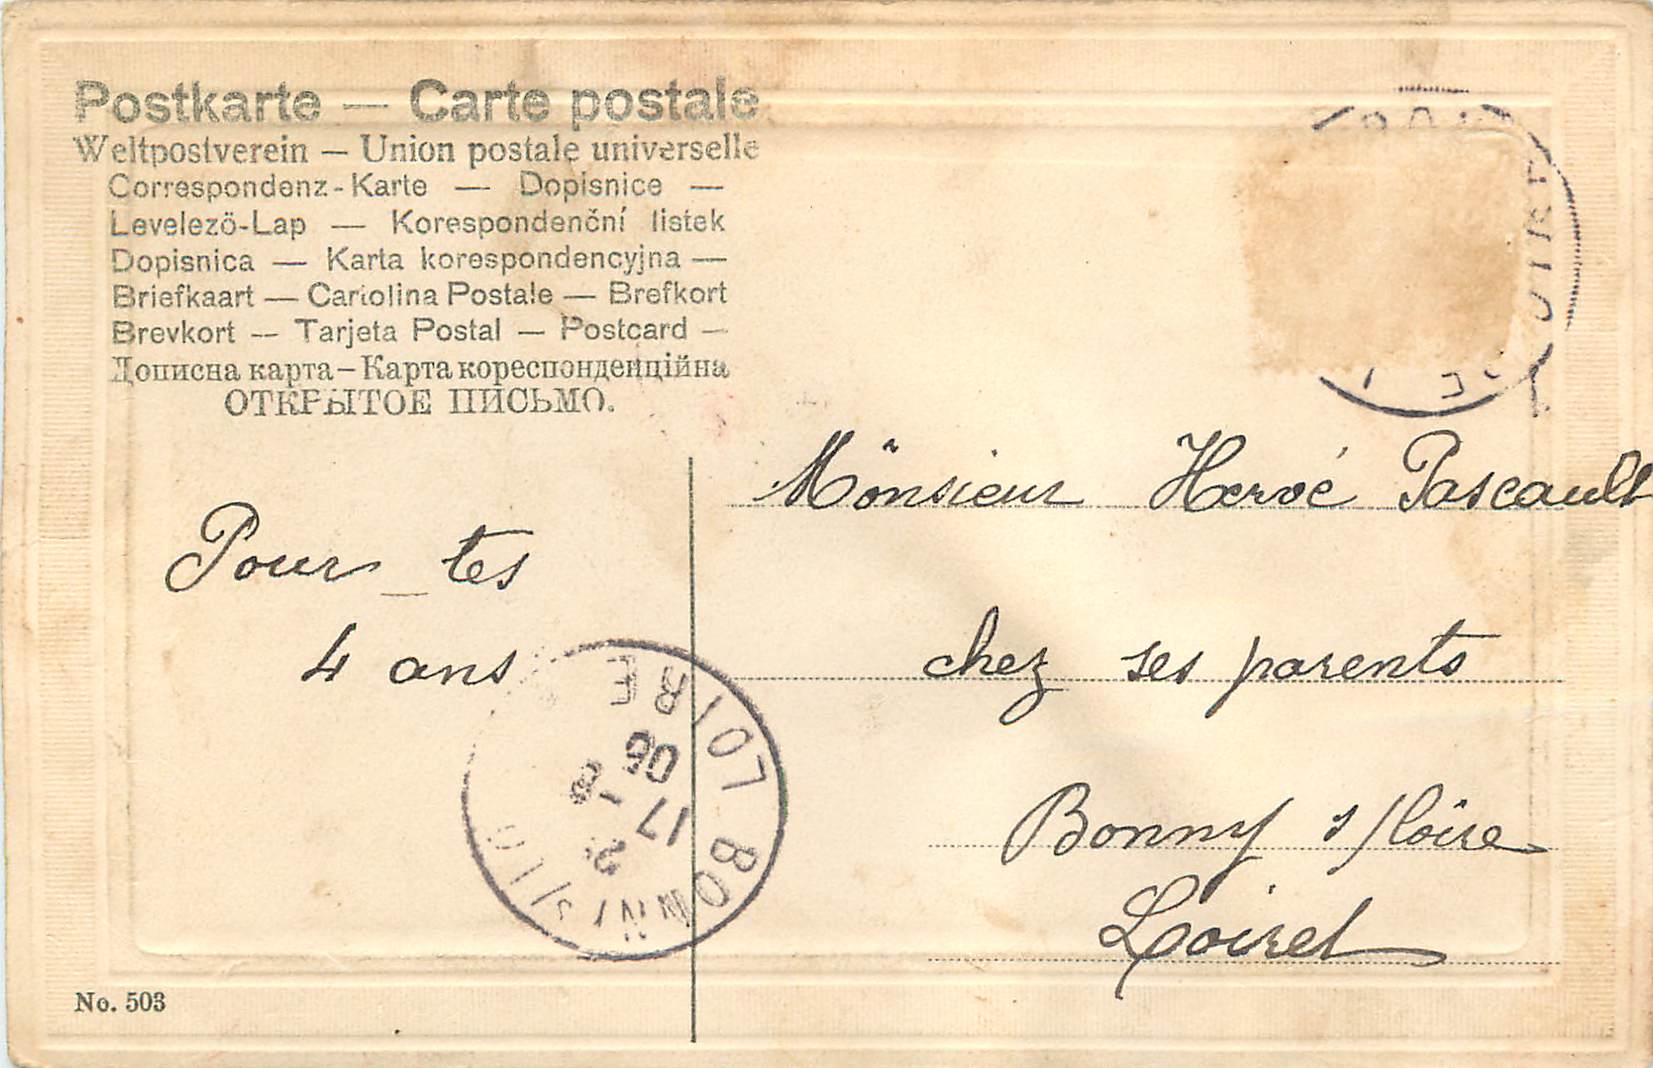 Postkarte — Carte postale
Weltpostverein — Union postale universelle
Correspondenz-Karte — Dopisnice —
Levelező-Lap — Korespondenční listek
Dopisnica — Karta korespondencyjna —
Briefkaart — Cartolina Postale — Brefkort
Brevkort — Tarjeta Postal — Postcard —
Дописна карта — Карта кореспонденційна
ОТКРЫТОЕ ПИСЬМО.
Pour tes
4 ans
Monsieur Hervé Pascault
chez ses parents
Bonny s/loire
Loiret
BONNY S/
LOIRE
17 - 8
06
No. 503